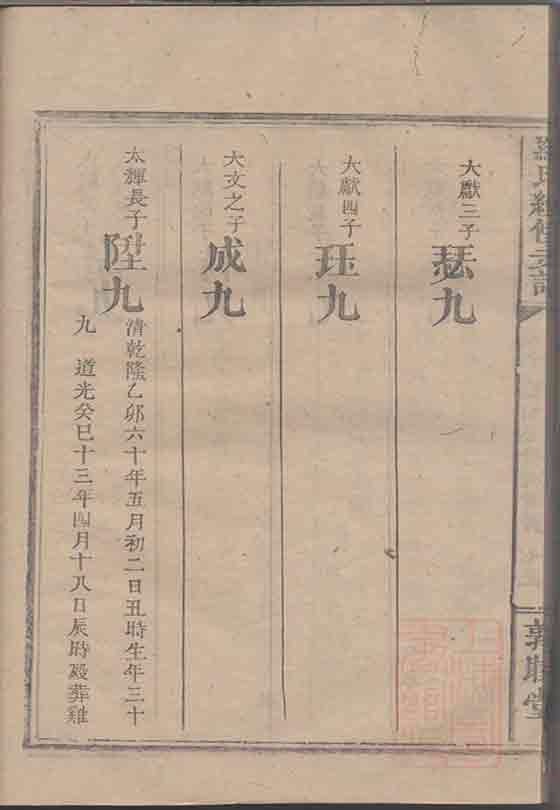 大獻三子
瑟九
大獻四子
珏九
大文之子
成九
大輝長子
陞九
清乾隆乙卯六十年五月初二日丑時生年三十
九 道光癸巳十三年四月十八日辰時歿葬雞